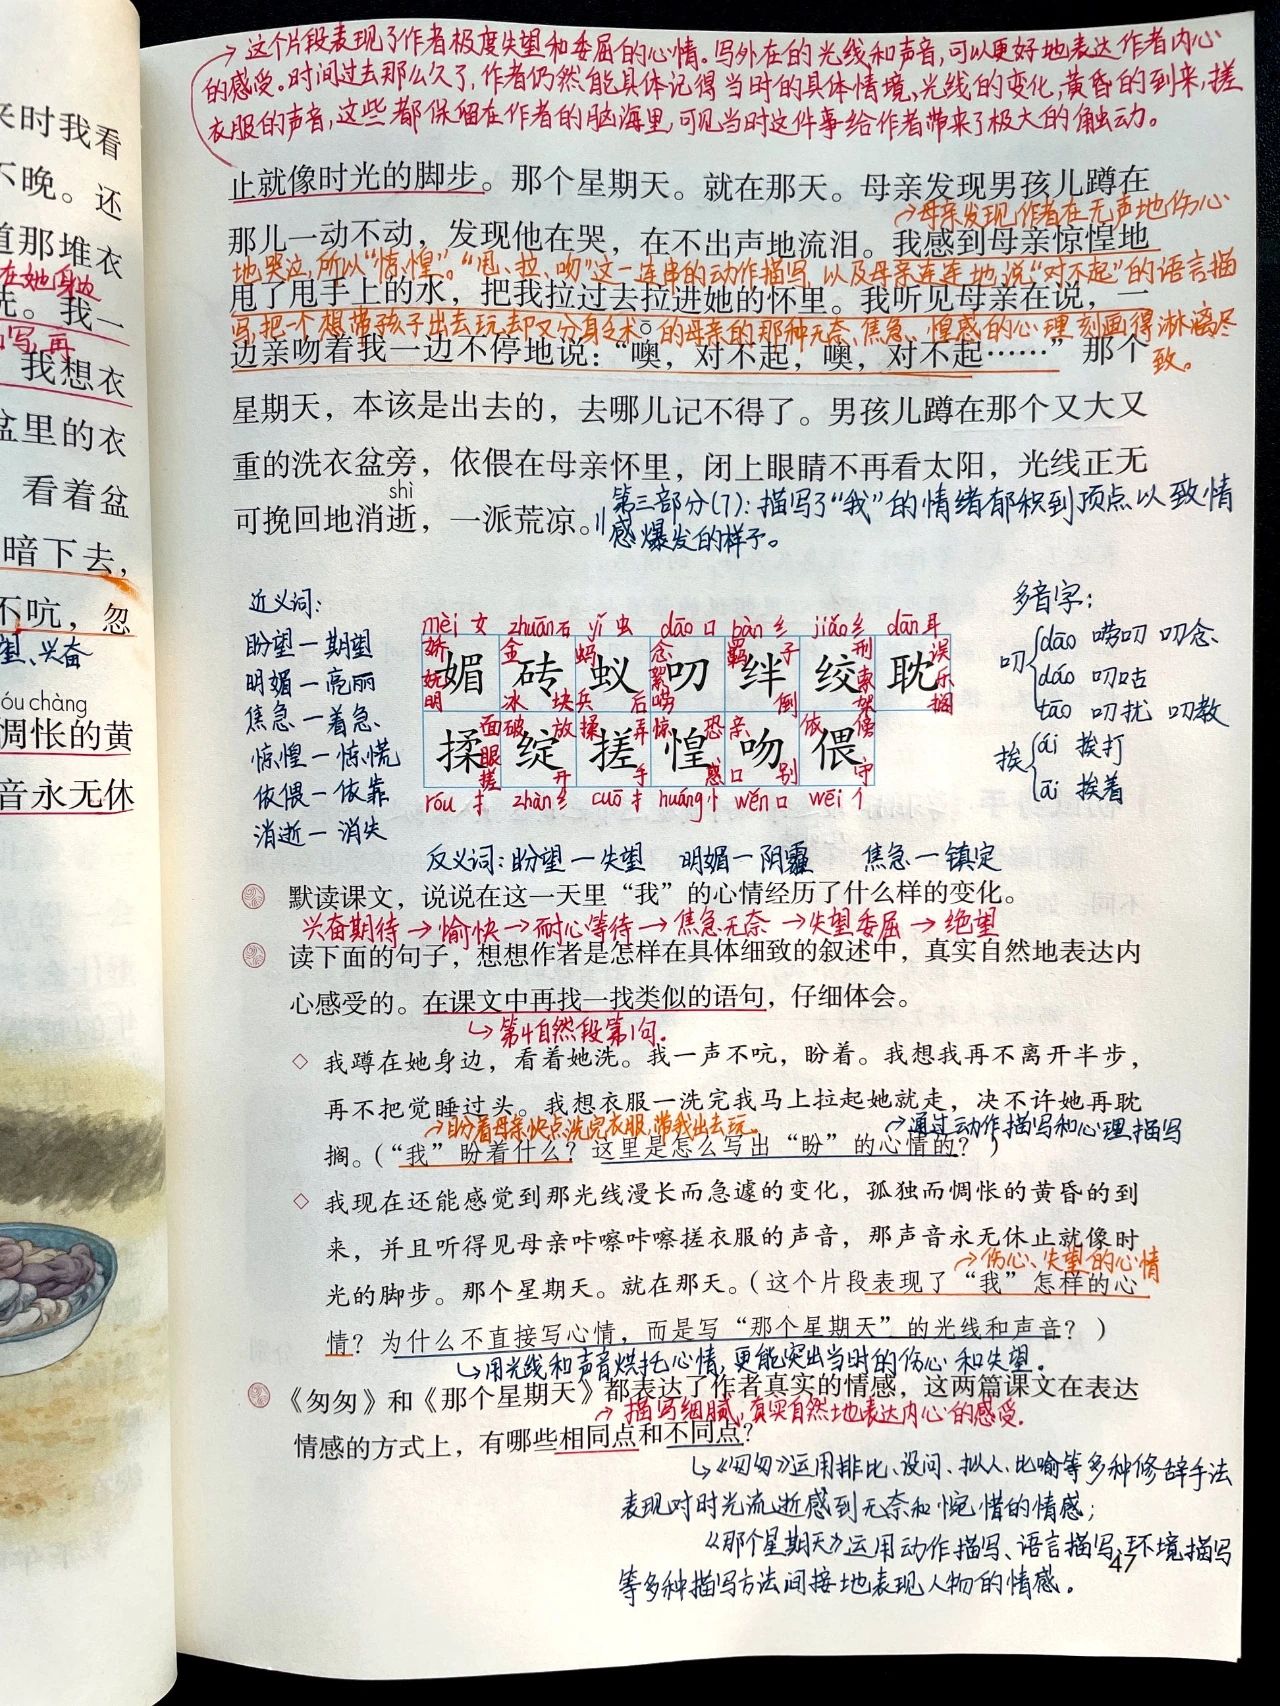 来时我看
不晚。还
道那堆衣
在她身边
洗。我一
写,再
我想衣
盆里的衣
看着盆
暗下去,
不吭,忽
望、兴奋
óu chàng
惆怅的黄
音永无休
→这个片段表现了作者极度失望和委屈的心情。写外在的光线和声音,可以更好地表达作者内心
的感受。时间过去那么久了,作者仍然能具体记得当时的具体情境,光线的变化,黄昏的到来,搓
衣服的声音,这些都保留在作者的脑海里,可见当时这件事给作者带来了极大的触动。
止就像时光的脚步。那个星期天。就在那天。母亲发现男孩儿蹲在
→母亲发现作者在无声地伤心
那儿一动不动,发现他在哭,在不出声地流泪。我感到母亲惊惶地
地哭泣,所以“惊惶”。“甩、拉、吻”这一连串的动作描写,以及母亲连连地说“对不起”的语言描
甩了甩手上的水,把我拉过去拉进她的怀里。我听见母亲在说,一
写,把一个想带孩子出去玩,却又分身乏术。的母亲的那种无奈、焦急、惶惑的心理刻画得淋漓尽
边亲吻着我一边不停地说:“噢,对不起,噢,对不起……”那个
致。
星期天,本该是出去的,去哪儿记不得了。男孩儿蹲在那个又大又
重的洗衣盆旁,依偎在母亲怀里,闭上眼睛不再看太阳,光线正无
shì
可挽回地消逝,一派荒凉。
第三部分(7):描写了“我”的情绪郁积到顶点以致情
感爆发的样子。
近义词:
盼望—期望
明媚—亮丽
焦急—着急
惊惶—惊慌
依偎—依靠
消逝—消失
mèi 女 zhuān 石 yǐ 虫 dāo 口 bàn 纟 jiǎo 纟 dān 耳
娇 妩 明 媚 金 冰 砖 块 蚂 兵 蚁 后 念 絮 唠 叨 羁 绊 子 倒 绞 刑 索 架 耽 误 乐 搁
揉 面 眼 搓 破 绽 放 开 揉 搓 弄 手 惊 惶 恐 惑 亲 口 吻 别 依 偎 傍 守
róu 扌 zhàn 纟 cuō 扌 huáng 忄 wěn 口 wēi 亻
多音字:
叨 dāo 唠叨 叨念
dáo 叨咕
tāo 叨扰 叨教
挨 ái 挨打
āi 挨着
反义词:盼望—失望 明媚—阴霾 焦急—镇定
默读课文,说说在这一天里“我”的心情经历了什么样的变化。
兴奋期待→愉快→耐心等待→焦急无奈→失望委屈→绝望
读下面的句子,想想作者是怎样在具体细致的叙述中,真实自然地表达内
心感受的。在课文中再找一找类似的语句,仔细体会。
↪第4自然段第1句。
◇ 我蹲在她身边,看着她洗。我一声不吭,盼着。我想我再不离开半步,
再不把觉睡过头。我想衣服一洗完我马上拉起她就走,决不许她再耽
→盼着母亲快点洗完衣服,带我出去玩。 →通过动作描写和心理描写
搁。(“我”盼着什么?这里是怎么写出“盼”的心情的?)
◇ 我现在还能感觉到那光线漫长而急遽的变化,孤独而惆怅的黄昏的到
来,并且听得见母亲咔嚓咔嚓搓衣服的声音,那声音永无休止就像时
→伤心、失望的心情
光的脚步。那个星期天。就在那天。(这个片段表现了“我”怎样的心
情?为什么不直接写心情,而是写“那个星期天”的光线和声音?)
↪用光线和声音烘托心情,更能突出当时的伤心和失望。
《匆匆》和《那个星期天》都表达了作者真实的情感,这两篇课文在表达
→描写细腻,真实自然地表达内心的感受。
情感的方式上,有哪些相同点和不同点?
↪《匆匆》运用排比、设问、拟人、比喻等多种修辞手法
表现对时光流逝感到无奈和惋惜的情感;
《那个星期天》运用动作描写、语言描写、环境描写
等多种描写方法间接地表现人物的情感。
47